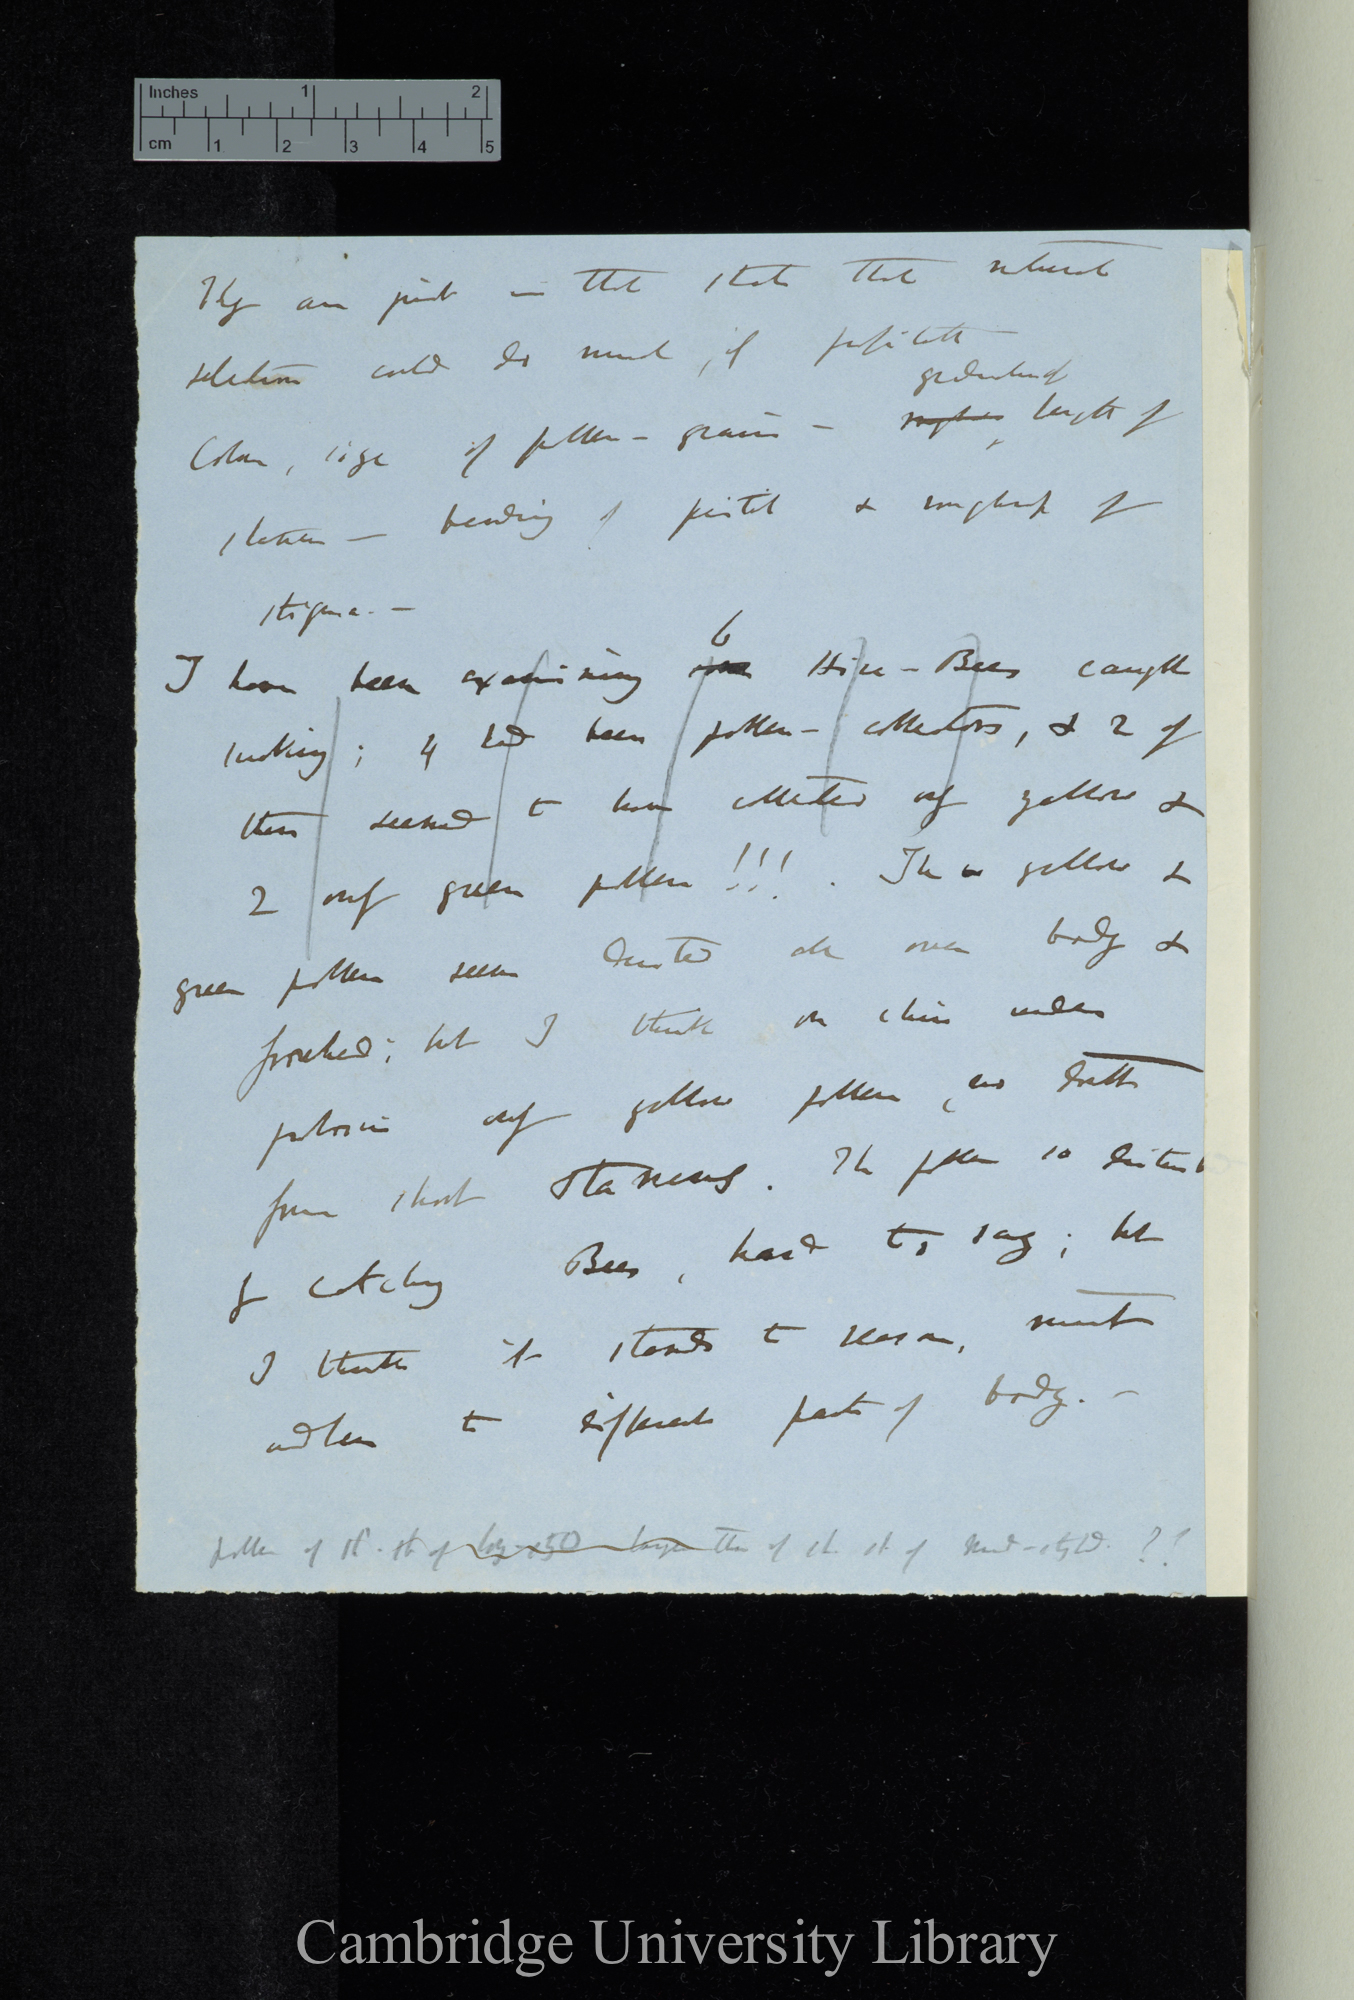 Inches 1 2
cm 1 2 3 4 5
They are just in that state that natural
selection could do much, if profitable
graduated
Colour, size of pollen-grains — length of
stamen — bending of pistil & roughness of
stigma. —
6
I have been examining Hive-Bees caught
sucking; 4 had been pollen-collectors, & 2 of
these seemed to have collected only yellow &
2 only green pollen!!!. The yellow &
green pollen seem dusted all over body &
forehead; but I think on chin under
proboscis only yellow pollen, no doubt
from short stamens. The pollen so disturbed
by catching Bees, hard to say; but
I think it stands to reason, must
adhere to different parts of body. —
pollen of sh. st of long-styled larger than of sh st of mid-styled. ??
Cambridge University Library